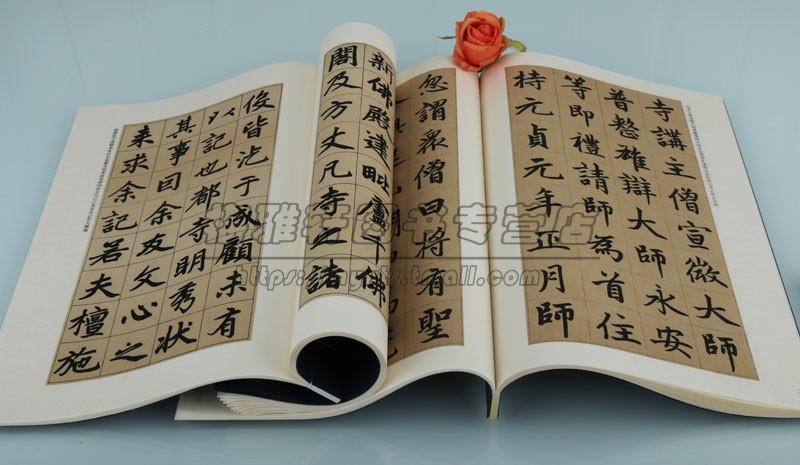 寺講主僧宣微大師
普整雄辯大師永安
等即禮請師為首住
持元貞元年正月師
忽謂眾僧曰將有聖
新佛殿建毗盧千佛
閣及方丈凡寺之諸
皆于成顧未有
以記也都寺明秀狀
其事因余友文心之
來求余記若夫檀施
雅轩图书专营店